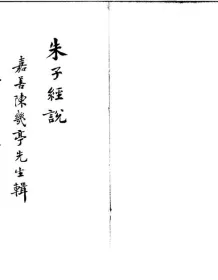 朱子經說
嘉善陳幾亭先生輯